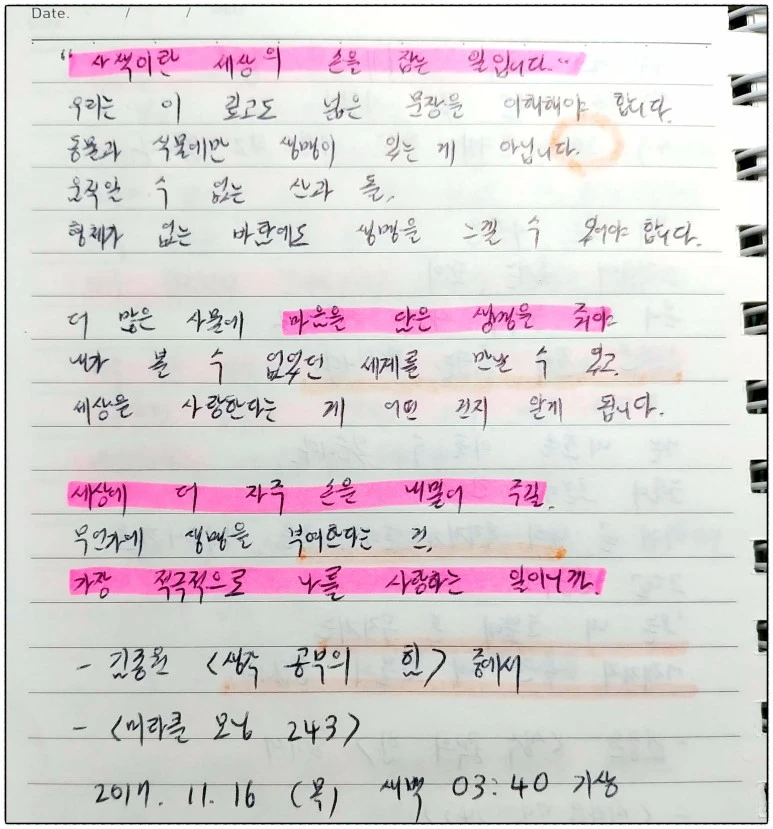 Date. / /
"사색이란 세상의 손을 잡는 일입니다."
우리는 이 짧고도 넓은 문장을 이해해야 합니다.
동물과 식물에만 생명이 있는 게 아닙니다.
움직일 수 없는 산과 돌,
형체가 없는 바람에도 생명을 느낄 수 있어야 합니다.
더 많은 사물에 마음을 담은 생명을 줘야
내가 볼 수 없었던 세계를 만날 수 있고,
세상을 사랑한다는 게 어떤 건지 알게 됩니다.
세상에 더 자주 손을 내밀어 주길.
무언가에 생명을 부여한다는 건,
가장 적극적으로 나를 사랑하는 일이니까.
- 김종원 <생각 공부의 힘> 중에서
- <미라클 모닝 243>
2017. 11. 16 (목) 새벽 03:40 기상